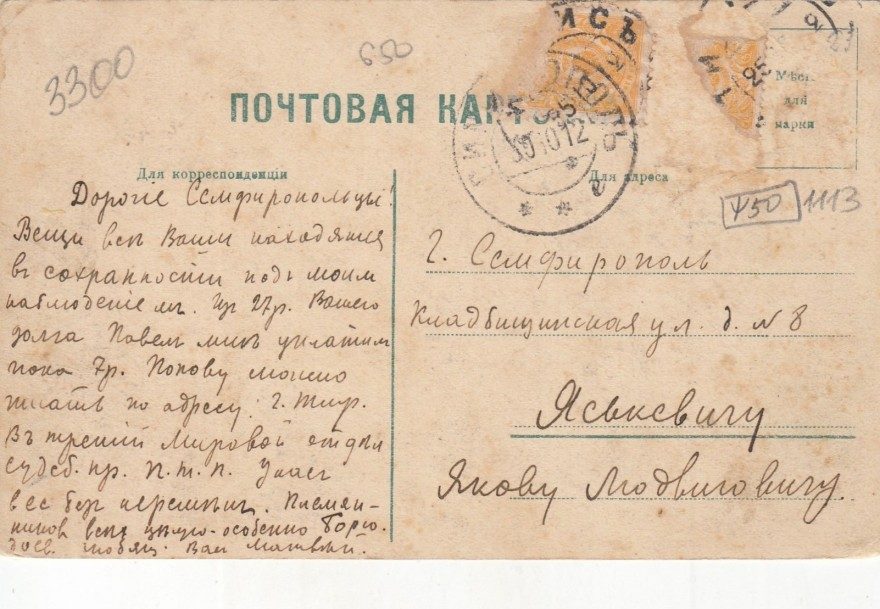 3300
650
21
ПОЧТОВАЯ КАРТО
Мѣст
для
марки
30 10 12
Для корреспонденціи
Для адреса
450
1113
Дорогіе Семфиропольцы!
Вещи всѣ Ваши находятся
въ сохранности подъ моим
наблюденіемъ. Из 27р. Вашего
долга Павел мнѣ уплатил
пока 7р. Попову можно
писать по адресу: г.
Въ третій Мировой отдѣл
судеб. пр. У нас
все без перемѣн. Племян-
ников всѣх цѣлую-особенно Борю.
любящ. Вас Матвѣй.
г. Семфирополь
Кладбищинская ул. д. N 8
Яськевичу
Якову Людвиговичу.